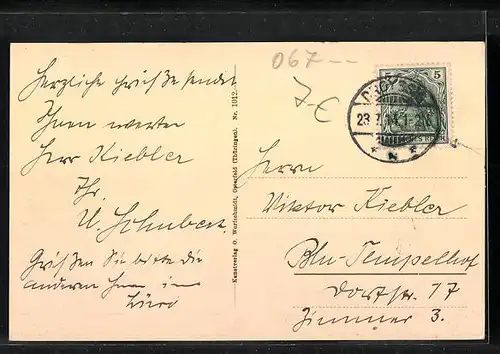 Herzliche Grüße sendet
Ihnen werter
Herr Kiebler
Ihr
U. Schubert
Grüßen Sie bitte die
anderen Herrn im
Büro
Kunstverlag O. Wurlschmidt, Greußen (Thüringen). Nr. 1012.
067 --
7-€
5 5
23.7.14.
N
Herrn
Viktor Kiebler
Bln-Tempelhof
Dorfstr. 17
Zimmer 3.